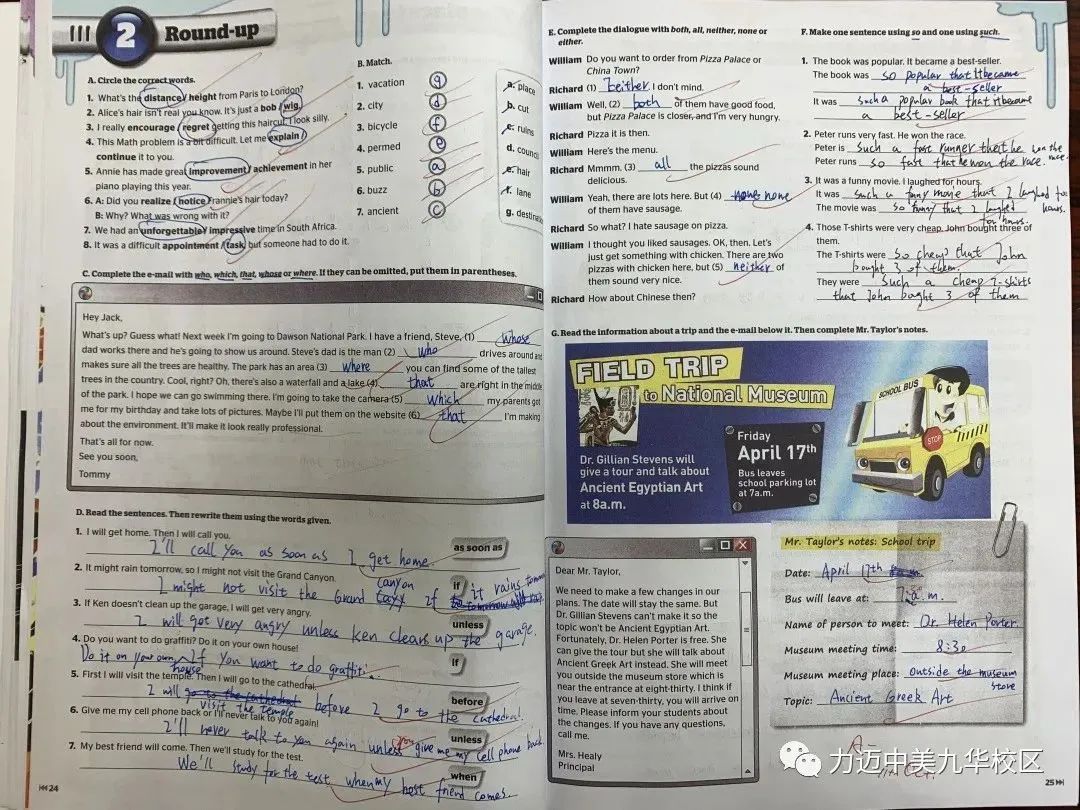 2 Round-up
A. Circle the correct words.
1. What's the distance / height from Paris to London?
2. Alice's hair isn't real you know. It's just a bob / wig.
3. I really encourage / regret getting this haircut. I look silly.
4. This Math problem is a bit difficult. Let me explain /
continue it to you.
5. Annie has made great improvement / achievement in her
piano playing this year.
6. A: Did you realize / notice Frannie's hair today?
B: Why? What was wrong with it?
7. We had an unforgettable / impressive time in South Africa.
8. It was a difficult appointment / task but someone had to do it.
B. Match.
1. vacation g
2. city d
3. bicycle f
4. permed e
5. public a
6. buzz b
7. ancient c
a. place
b. cut
c. ruins
d. council
e. hair
f. lane
g. destination
C. Complete the e-mail with who, which, that, whose or where. If they can be omitted, put them in parentheses.
Hey Jack,
What's up? Guess what! Next week I'm going to Dawson National Park. I have a friend, Steve, (1) whose
dad works there and he's going to show us around. Steve's dad is the man (2) who drives around and
makes sure all the trees are healthy. The park has an area (3) where you can find some of the tallest
trees in the country. Cool, right? Oh, there's also a waterfall and a lake (4) that are right in the middle
of the park. I hope we can go swimming there. I'm going to take the camera (5) which my parents got
me for my birthday and take lots of pictures. Maybe I'll put them on the website (6) that I'm making
about the environment. It'll make it look really professional.
That's all for now.
See you soon,
Tommy
D. Read the sentences. Then rewrite them using the words given.
1. I will get home. Then I will call you.
I'll call you as soon as I get home. as soon as
2. It might rain tomorrow, so I might not visit the Grand Canyon. if
canyon
I might not visit the Grand if it rains
3. If Ken doesn't clean up the garage, I will get very angry. unless
I will got very angry unless Ken clears up the garage.
4. Do you want to do graffiti? Do it on your own house! if
Do it on your own house If you want to do graffiti.
5. First I will visit the temple. Then I will go to the cathedral. before
I will go to the cathedral before I go to the cathedral.
visit the temple
6. Give me my cell phone back or I'll never talk to you again! unless
I'll never talk to you again unless you give me my cell phone back
7. My best friend will come. Then we'll study for the test. when
We'll study for the test when my best friend comes.
24
E. Complete the dialogue with both, all, neither, none or
either.
William Do you want to order from Pizza Palace or
China Town?
Richard (1) I don't mind.
William Well, (2) both of them have good food,
but Pizza Palace is closer, and I'm very hungry.
Richard Pizza it is then.
William Here's the menu.
Richard Mmmm. (3) all the pizzas sound
delicious.
William Yeah, there are lots here. But (4) none none
of them have sausage.
Richard So what? I hate sausage on pizza.
William I thought you liked sausages. OK, then. Let's
just get something with chicken. There are two
pizzas with chicken here, but (5) neither of
them sound very nice.
Richard How about Chinese then?
F. Make one sentence using so and one using such.
1. The book was popular. It became a best-seller.
The book was so popular that it became
a best-seller
It was such a popular book that it became
a best-seller
2. Peter runs very fast. He won the race.
Peter is such a fast runner that he won the race.
Peter runs so fast that he won the race.
3. It was a funny movie. I laughed for hours.
It was such a funny movie that I laughed for hours.
The movie was so funny that I laughed
for hours.
4. Those T-shirts were very cheap. John bought three of
them.
The T-shirts were so cheap that John
bought 3 of them.
They were such a cheap T-shirts
that John bought 3 of them
G. Read the information about a trip and the e-mail below it. Then complete Mr. Taylor's notes.
FIELD TRIP
to National Museum
Dr. Gillian Stevens will
give a tour and talk about
Ancient Egyptian Art
at 8a.m.
Friday
April 17th
Bus leaves
school parking lot
at 7a.m.
SCHOOL BUS
STOP
Dear Mr. Taylor,
We need to make a few changes in our
plans. The date will stay the same. But
Dr. Gillian Stevens can't make it so the
topic won't be Ancient Egyptian Art.
Fortunately, Dr. Helen Porter is free. She
can give the tour but she will talk about
Ancient Greek Art instead. She will meet
you outside the museum store which is
near the entrance at eight-thirty. I think if
you leave at seven-thirty, you will arrive on
time. Please inform your students about
the changes. If you have any questions,
call me.
Mrs. Healy
Principal
Mr. Taylor's notes: School trip
Date: April 17th
Bus will leave at: a.m.
Name of person to meet: Dr. Helen Porter.
Museum meeting time: 8:30
Museum meeting place: outside the museum
store
Topic: Ancient Greek Art
力迈中美九华校区
25